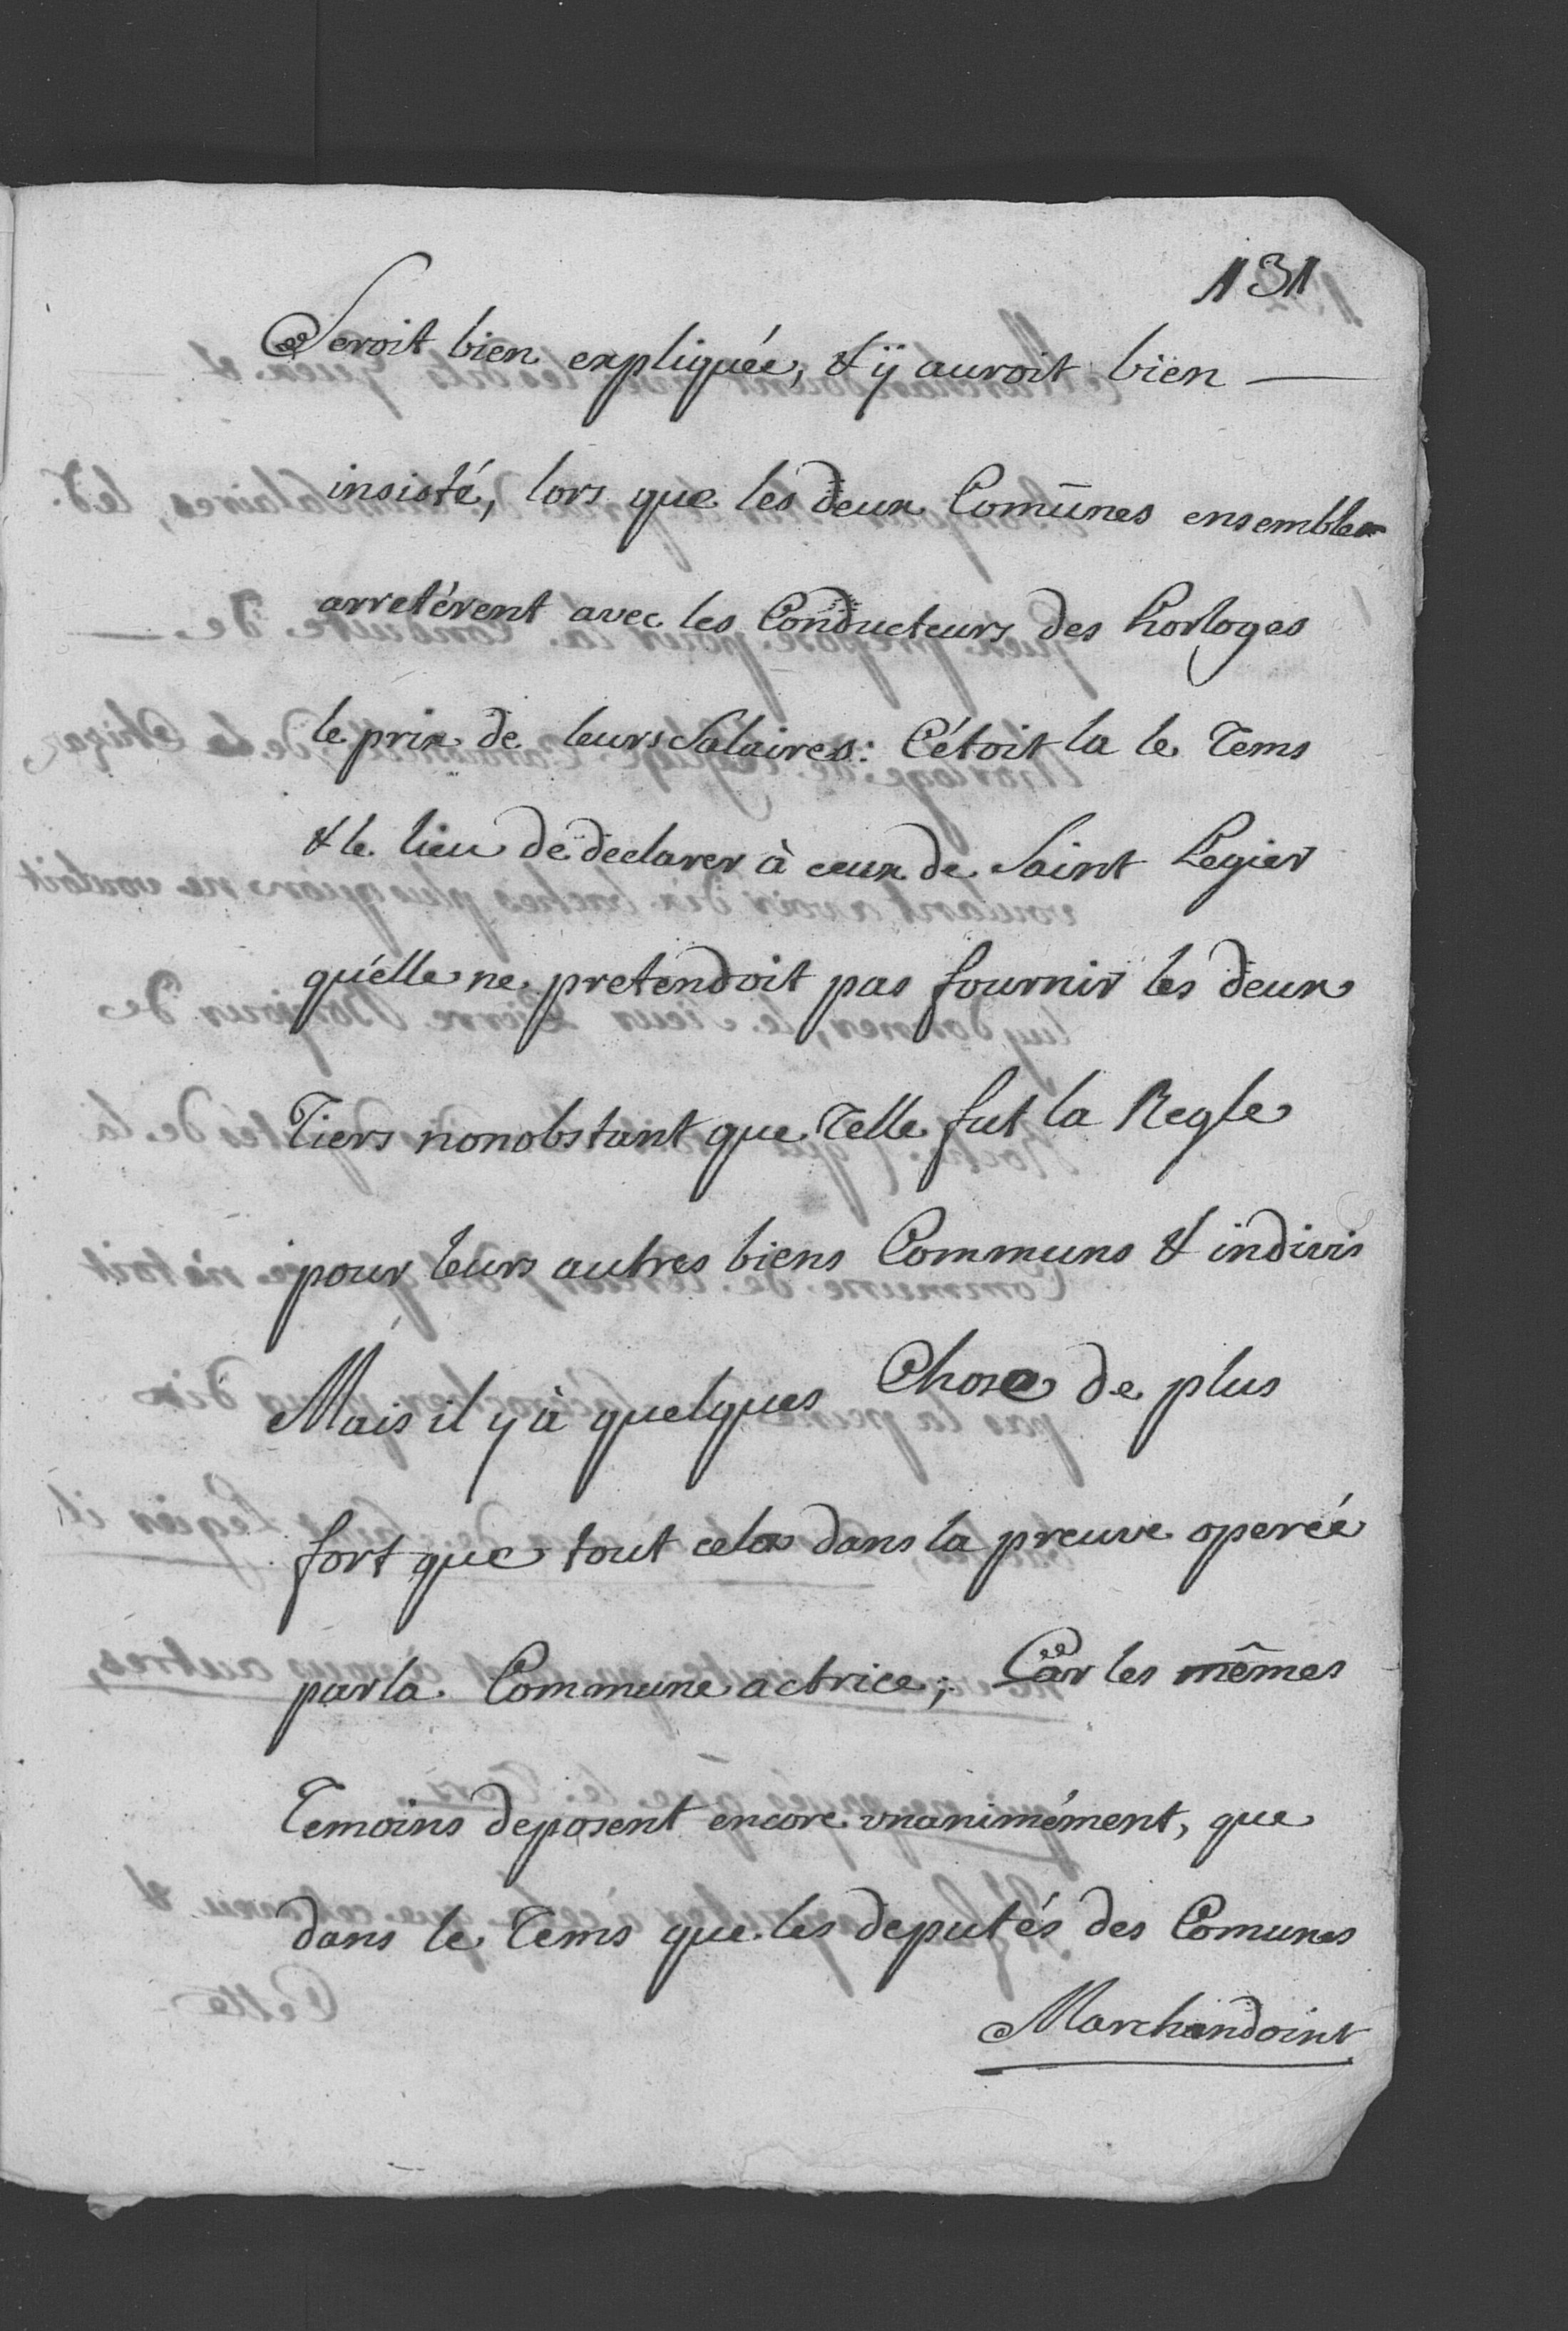 131
Seroit bien expliquée, & ÿ auroit bien —
insisté, lors que les deux Comūnes ensemble
arretérent avec les Conducteurs des horloges
le prix de leurs Salaires: C'étoit la le Tems
& le lieu de declarer à ceux de Saint Legier
qu'elle ne pretendoit pas fournir les deux
Tiers nonobstant que Telle fut la Regle
pour leurs autres biens Communs & indivis
Mais il y à quelques Chose de plus
fort que tout cela dans la preuve operée
par la Commune actrice; Car les mêmes
Temoins deposent encore unanimément, que
dans le Tems que les deputés des Comunes
Marchandoint